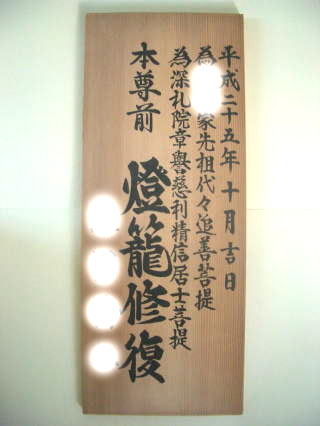 平成二十五年十月吉日
為家先祖代々追善菩提
為深礼院章譽慈利精信居士菩提
本尊前 燈籠修復